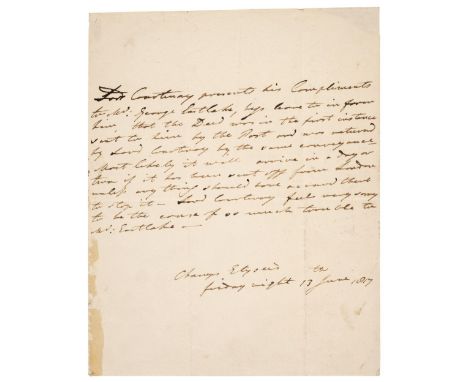 Lord Courtenay presents his Compliments
to Mr: George Eastlake, begs leave to inform
him, that the Deed was in the first instance
sent to him by the Post and was returned
by Lord Courtenay by the same conveyance
most likely it will arrive in a day or
two if it has been sent off from London
unless any thing should have occurred there
to stop it – Lord Courtenay feels very sorry
to be the cause of so much trouble to
Mr: Eastlake –
Champs Elysées
friday night 13 th June, 1817